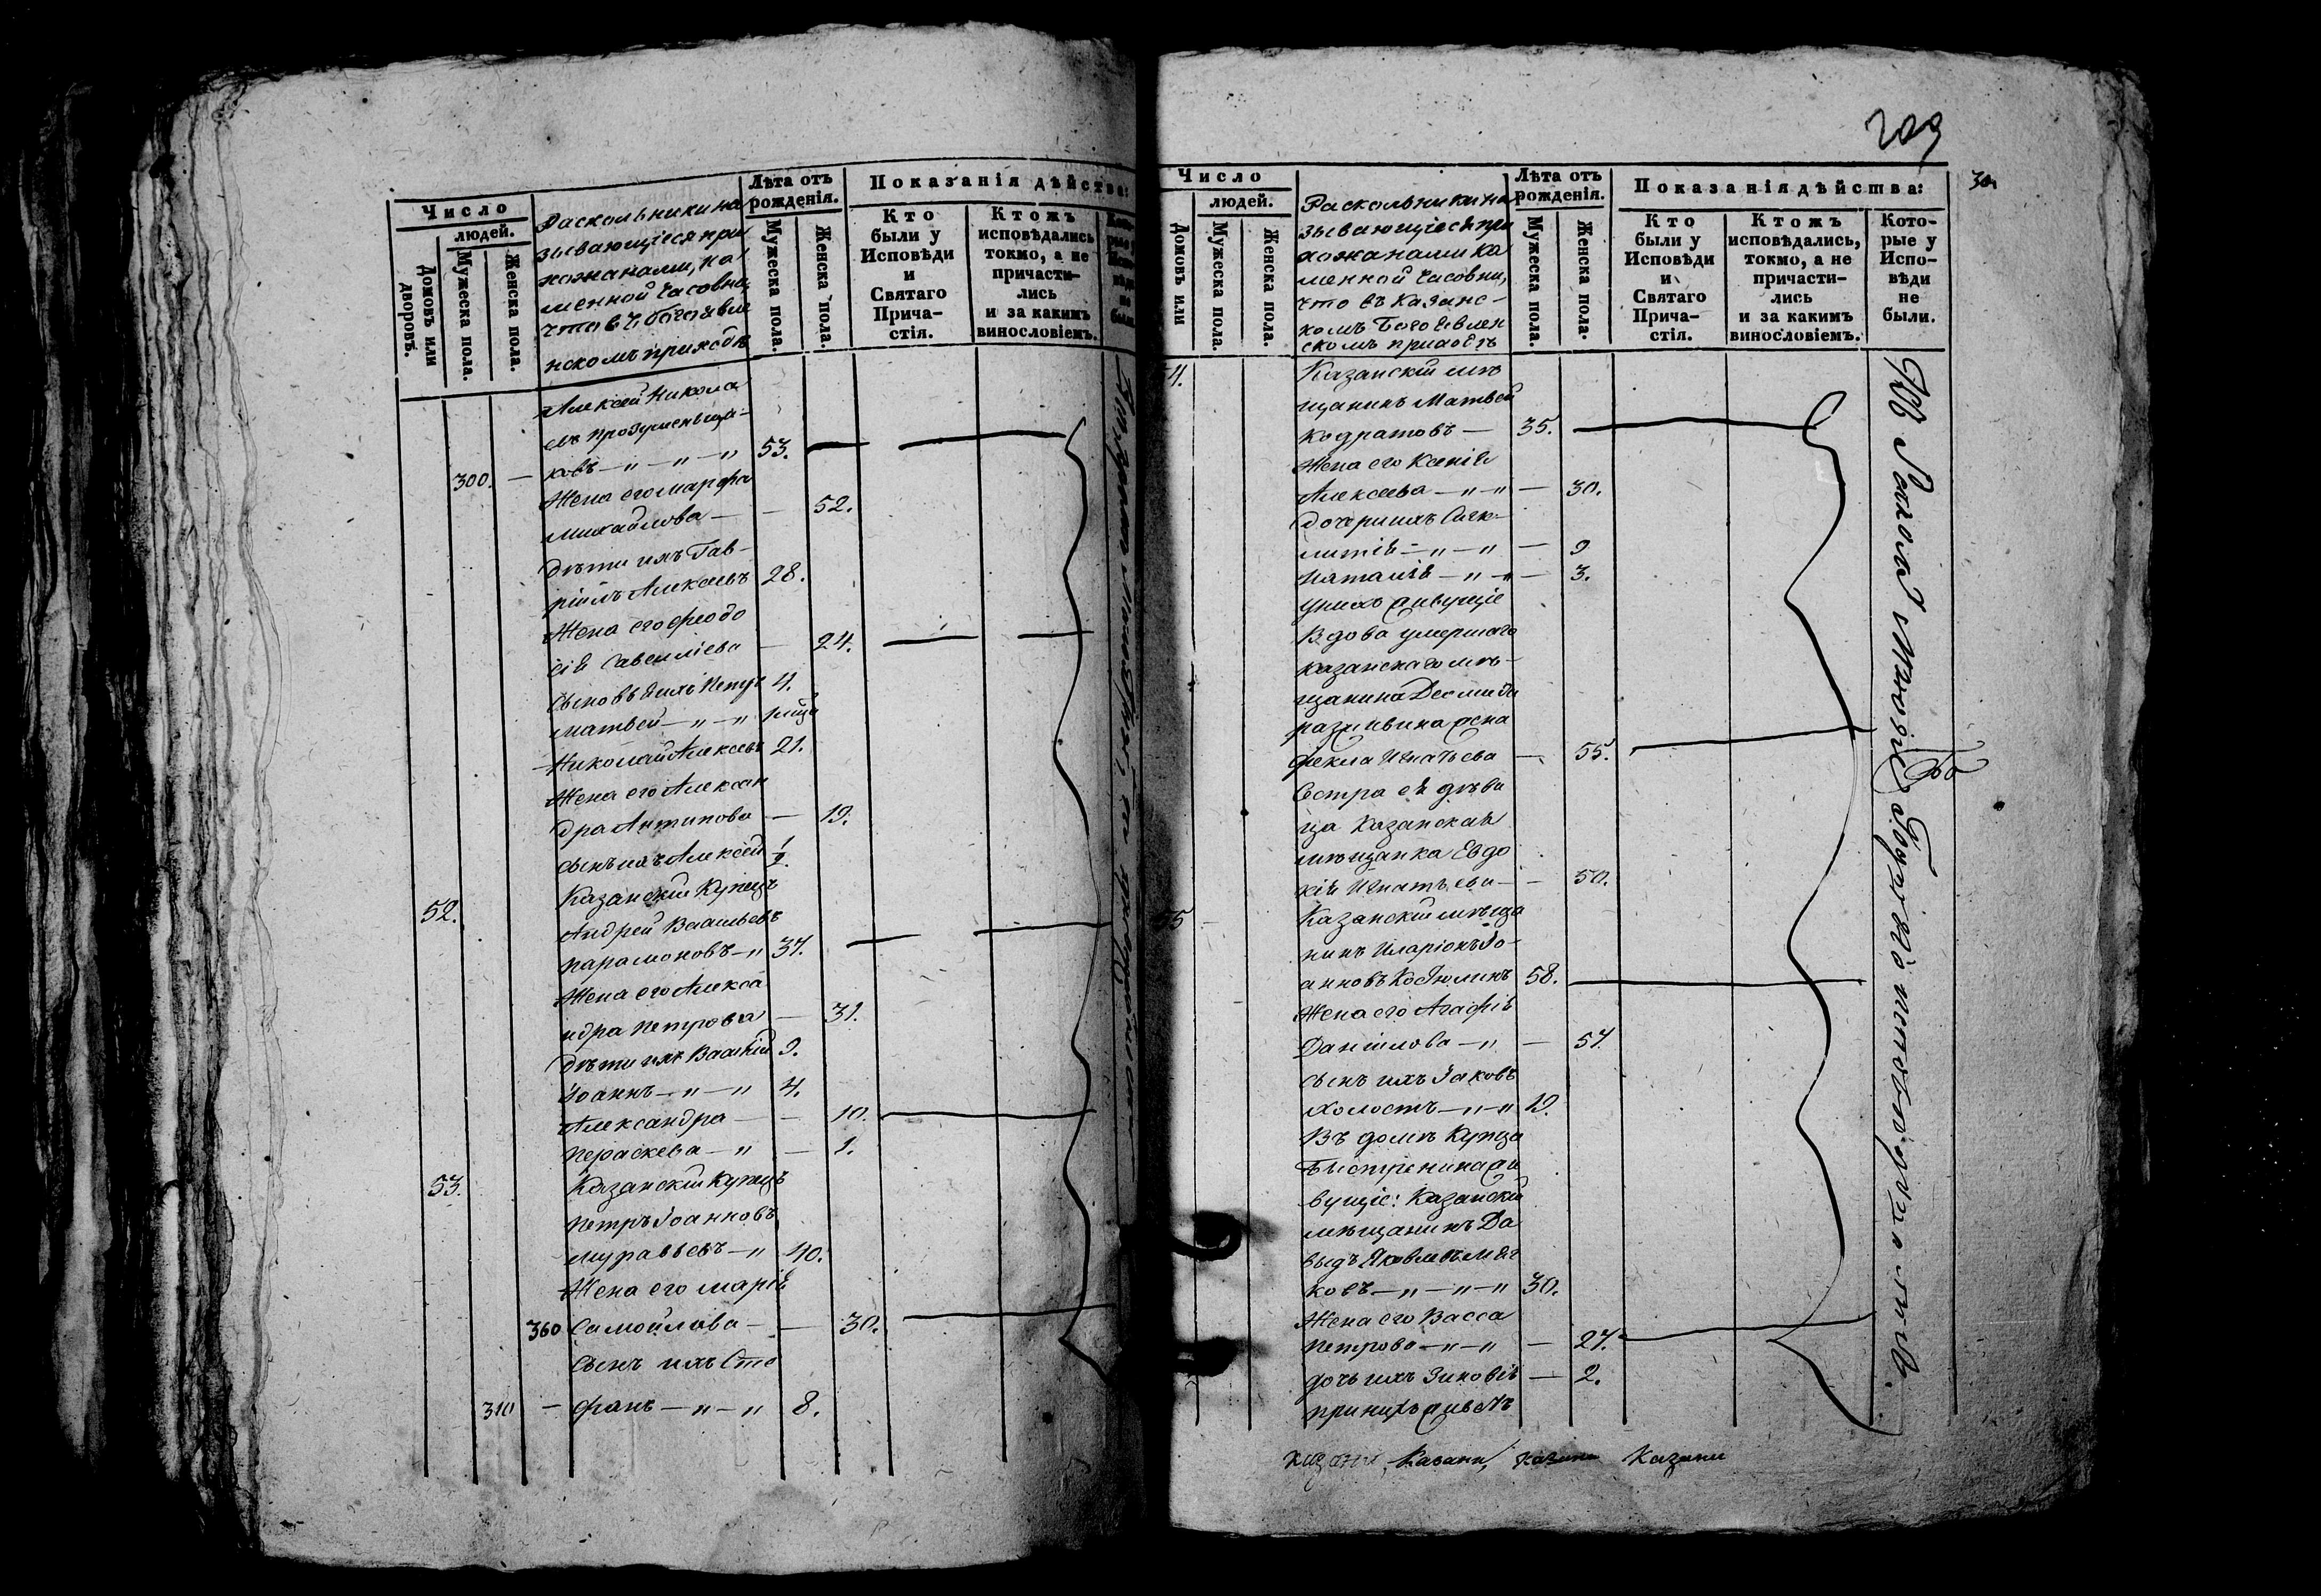 Число
людей.
Домовъ или дворовъ.
Мужеска пола.
Женска пола.
Раскольники на
зывающіеся при
хожанами, ка
менной часовни,
что въ Богоявле
нскомъ приходѣ
Лѣта отъ рожденія.
Мужеска пола.
Женска пола.
Показанія дѣйства:
Кто были у Исповѣди и Святаго Прича-стія.
Ктожъ исповѣдались токмо, а не причасти-лись и за какимъ винословіемъ.
Алексѣй Никола
евъ Прозументщи-
300. — ковъ — „ — „ — „ 53.
Жена его Марфа
Михайлова — — 52.
Дѣти ихъ Гав-
ріилъ Алексѣевъ 28.
Жена его Феодо
сія Савеліева — 24.
Сыновья ихъ Петръ 4.
Матвей — „ — „
Николай Алексѣевъ 21.
Жена его Алексан
дра Антипова — 19.
Сынъ ихъ Алексѣй 1/2
Казанскій Купецъ
52. Андрей Васильевъ
Парамоновъ — „ 37.
Жена его Алекса
ндра Петрова — 31.
Дѣти ихъ Василій 9.
Іоаннъ — „ — „ 4.
Александра — — 10.
Пераскева — „ — 1.
53. Казанскій Купецъ
Петръ Іоанновъ
Муравьевъ — „ 40.
Жена его Марія
360 Самойлова — — 30.
Сынъ ихъ Сте
310 — фанъ — „ — „ 8.
209
Число
людей.
Домовъ или
Мужеска пола.
Женска пола.
Раскольники на
зывающіеся при
хожанами ка
менной часовни,
что въ Казанс-
комъ Богоявлен
скомъ приходѣ
Лѣта отъ рожденія.
Мужеска пола.
Женска пола.
Показанія дѣйства:
Кто были у Исповѣди и Святаго Прича-стія.
Ктожъ исповѣдались, токмо, а не причасти-лись и за какимъ винословіемъ.
Кото-рые у Испо-вѣди не были.
54. Казанскій мѣ
щанинъ Матвей
Кодратовъ — 35.
Жена его Ксенія
Алексѣева — „ — „ — 30.
Дочери ихъ Сик-
литія — „ — „ — 9
Наталія — „ — „ — 3.
У нихъ живущіе
Вдова умершаго
Казанскаго мѣ-
щанина
жена
Фекла Игнатьева — 55.
Сестра ея дѣви
ца Казанская
мѣщанка Евдо
кія Игнатьева — — 50.
55 Казанскій мѣща
нинъ Иларіонъ Іо-
анновъ Костюминъ 58.
Жена его Агафія
Даніилова — „ — 57.
Сынъ ихъ Іаковъ
холостъ — „ — „ 19.
Въ домѣ Купца
Быстренина жи
вущіе: Казанскій
мѣщанинъ Да
выдъ Яковлевъ Мяг
ковъ — „ — „ — „ 30.
Жена его Васса
Петрова — „ — „ — 27.
Дочь ихъ Зиновія — 2.
При нихъ живетъ
Казани, Казани, Казани Казани